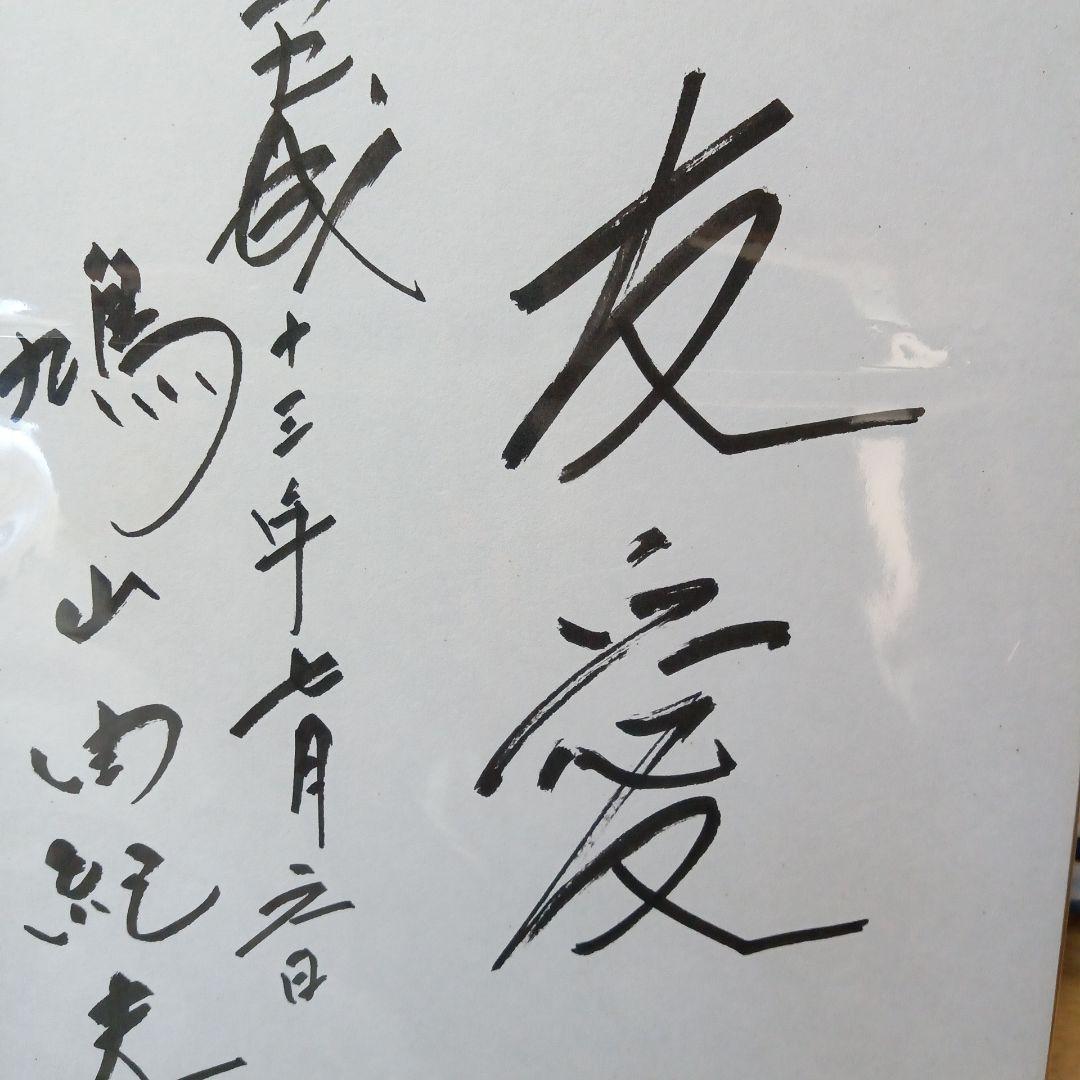 友愛
成十三年七月六日
鳩山由紀夫